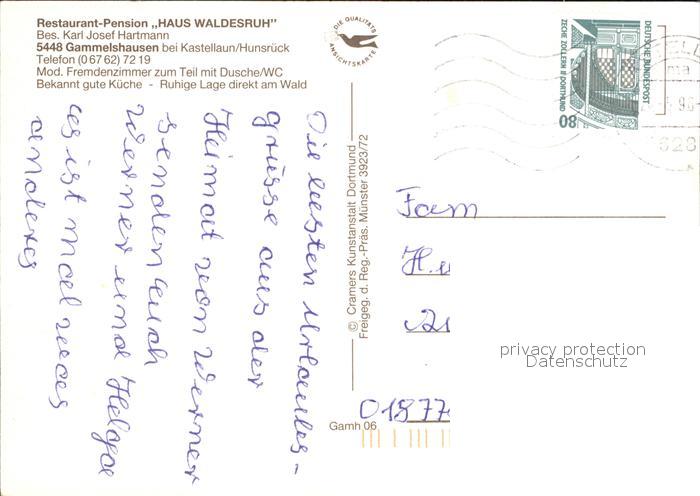 Restaurant-Pension „HAUS WALDESRUH"
Bes. Karl Josef Hartmann
5448 Gammelshausen bei Kastellaun/Hunsrück
Telefon (0 67 62) 72 19
Mod. Fremdenzimmer zum Teil mit Dusche/WC
Bekannt gute Küche - Ruhige Lage direkt am Wald
DIE QUALITÄTS
ANSICHTSKARTE
Die besten Urlaubs-
grüsse aus der
Heimat von Werner
senden Euch
Werner und Helga
es ist mal was
anderes
© Cramers Kunstanstalt Dortmund
Freigeg. d. Reg.-Präs. Münster 3923/72
Gamh 06
DEUTSCHE BUNDESPOST
ZECHE ZOLLERN II DORTMUND
80
Fam
01877
privacy protection
Datenschutz